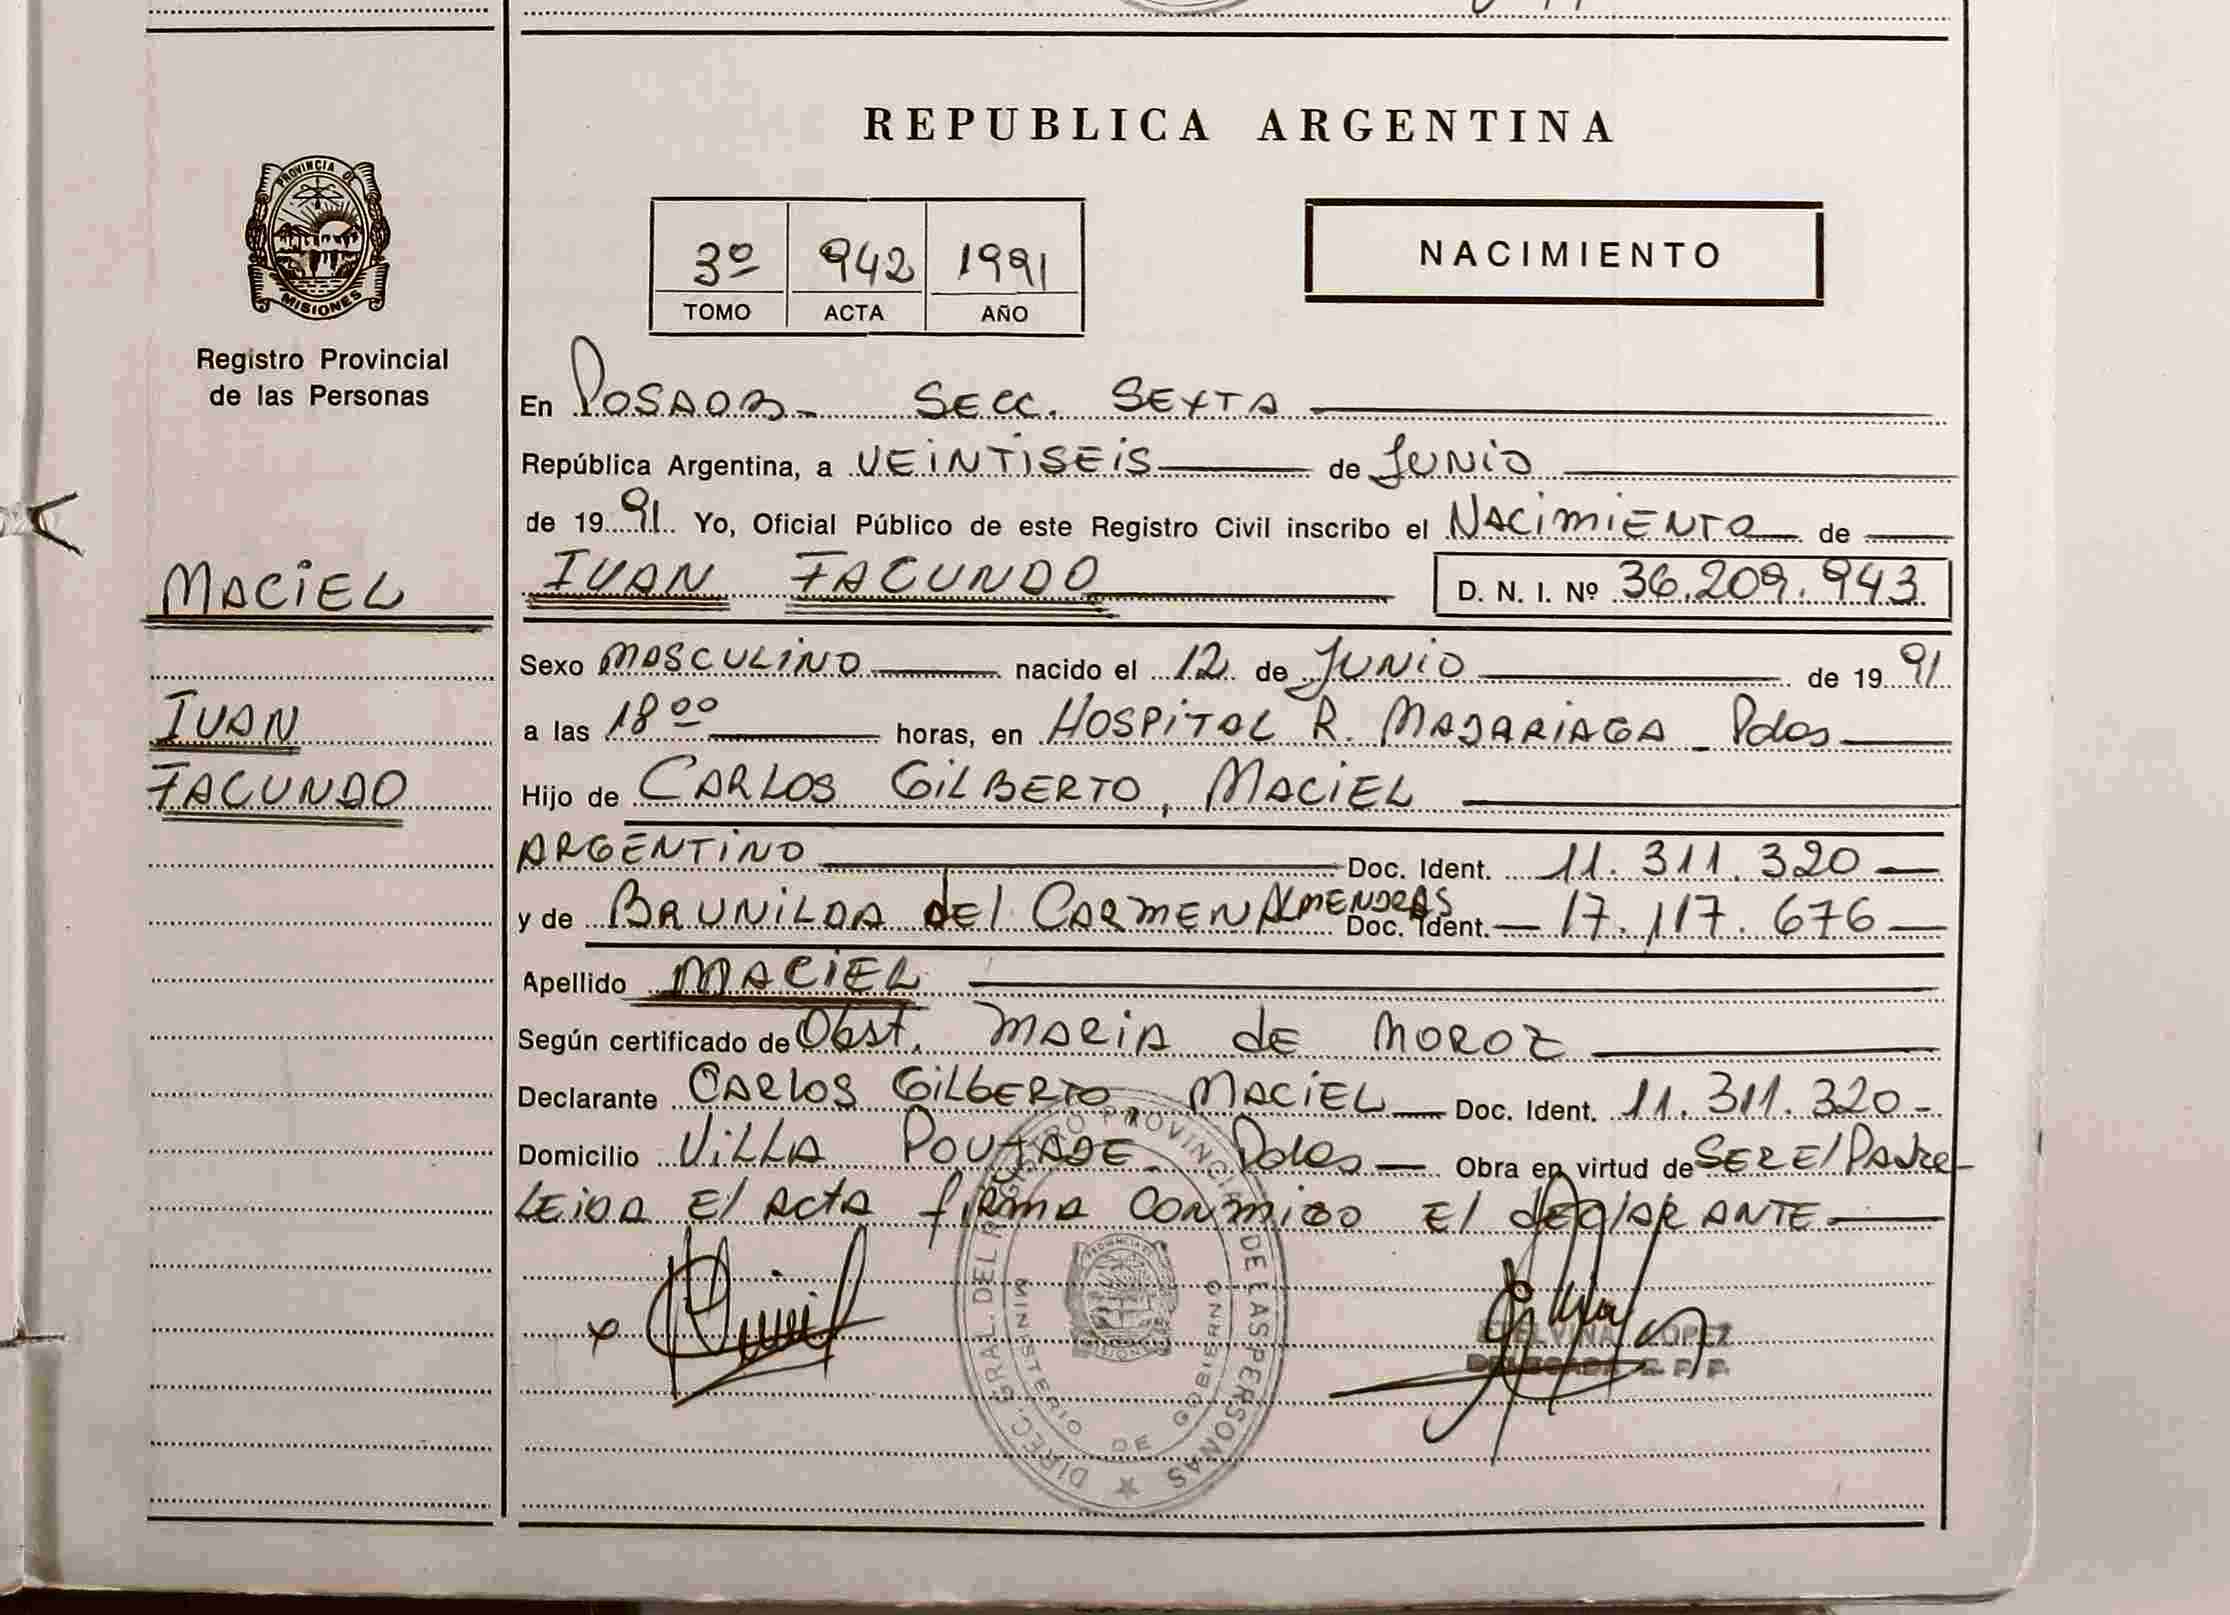 PROVINCIA DE
MISIONES
Registro Provincial
de las Personas
MACIEL
IVAN
FACUNDO
REPUBLICA ARGENTINA
3º 942 1991
TOMO ACTA AÑO
NACIMIENTO
En POSADAS - SECC. SEXTA
República Argentina, a VEINTISEIS de JUNIO
de 1991 Yo, Oficial Público de este Registro Civil inscribo el NACIMIENTO de
IVAN FACUNDO D. N. I. Nº 36.209.943
Sexo MASCULINO nacido el 12 de JUNIO de 1991
a las 18 00 horas, en HOSPITAL R. MADARIAGA - Pdas
Hijo de CARLOS GILBERTO, MACIEL
ARGENTINO Doc. Ident. 11.311.320
y de BRUNILDA DEL CARMEN ALMENDRAS Doc. Ident. 17.117.676
Apellido MACIEL
Según certificado de Obst. MARIA de MOROZ
Declarante CARLOS GILBERTO, MACIEL Doc. Ident. 11.311.320
Domicilio VILLA POUJADE - Pdas Obra en virtud de SER El Padre
LEIDA El ACTA firma CONMIGO El declARANTE
DIREC. GRAL. DEL REGISTRO PROVINCIAL DE LAS PERSONAS
MINISTERIO DE GOBIERNO
PROVINCIA DE
MISIONES
LOPEZ